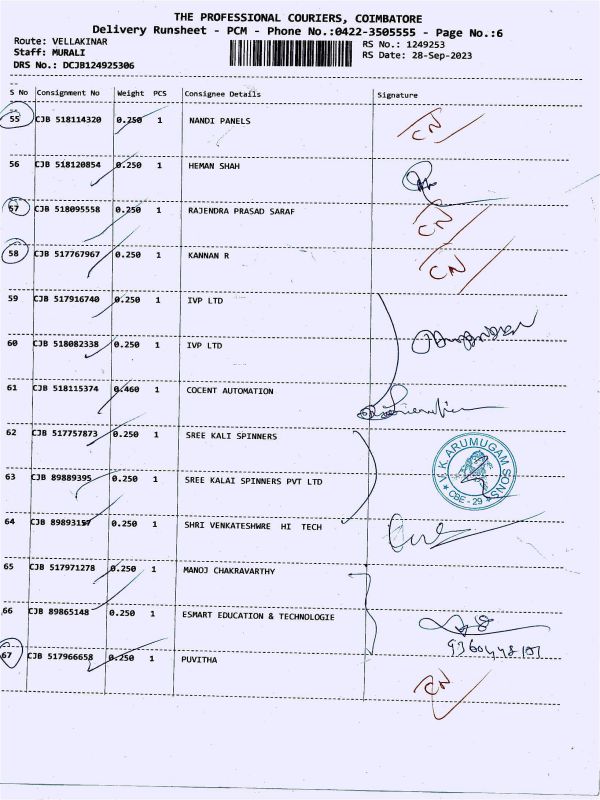 THE PROFESSIONAL COURIERS, COIMBATORE
Delivery Runsheet - PCM - Phone No.:0422-3505555 - Page No.:6
Route: VELLAKINAR RS No.: 1249253
Staff: MURALI RS Date: 28-Sep-2023
DRS No.: DCJB124925306
S No Consignment No Weight PCS Consignee Details Signature
55 CJB 518114320 0.250 1 NANDI PANELS CN
56 CJB 518120854 0.250 1 HEMAN SHAH
57 CJB 518095558 0.250 1 RAJENDRA PRASAD SARAF CN
58 CJB 517767967 0.250 1 KANNAN R CN
59 CJB 517916740 0.250 1 IVP LTD
60 CJB 518082338 0.250 1 IVP LTD
61 CJB 518115374 0.460 1 COCENT AUTOMATION
62 CJB 517757873 0.250 1 SREE KALI SPINNERS
V.K. ARUMUGAM SONS
CBE - 29
63 CJB 89889395 0.250 1 SREE KALAI SPINNERS PVT LTD
64 CJB 89893157 0.250 1 SHRI VENKATESHWRE HI TECH
65 CJB 517971278 0.250 1 MANOJ CHAKRAVARTHY
66 CJB 89865148 0.250 1 ESMART EDUCATION & TECHNOLOGIE
67 CJB 517966658 0.250 1 PUVITHA CN